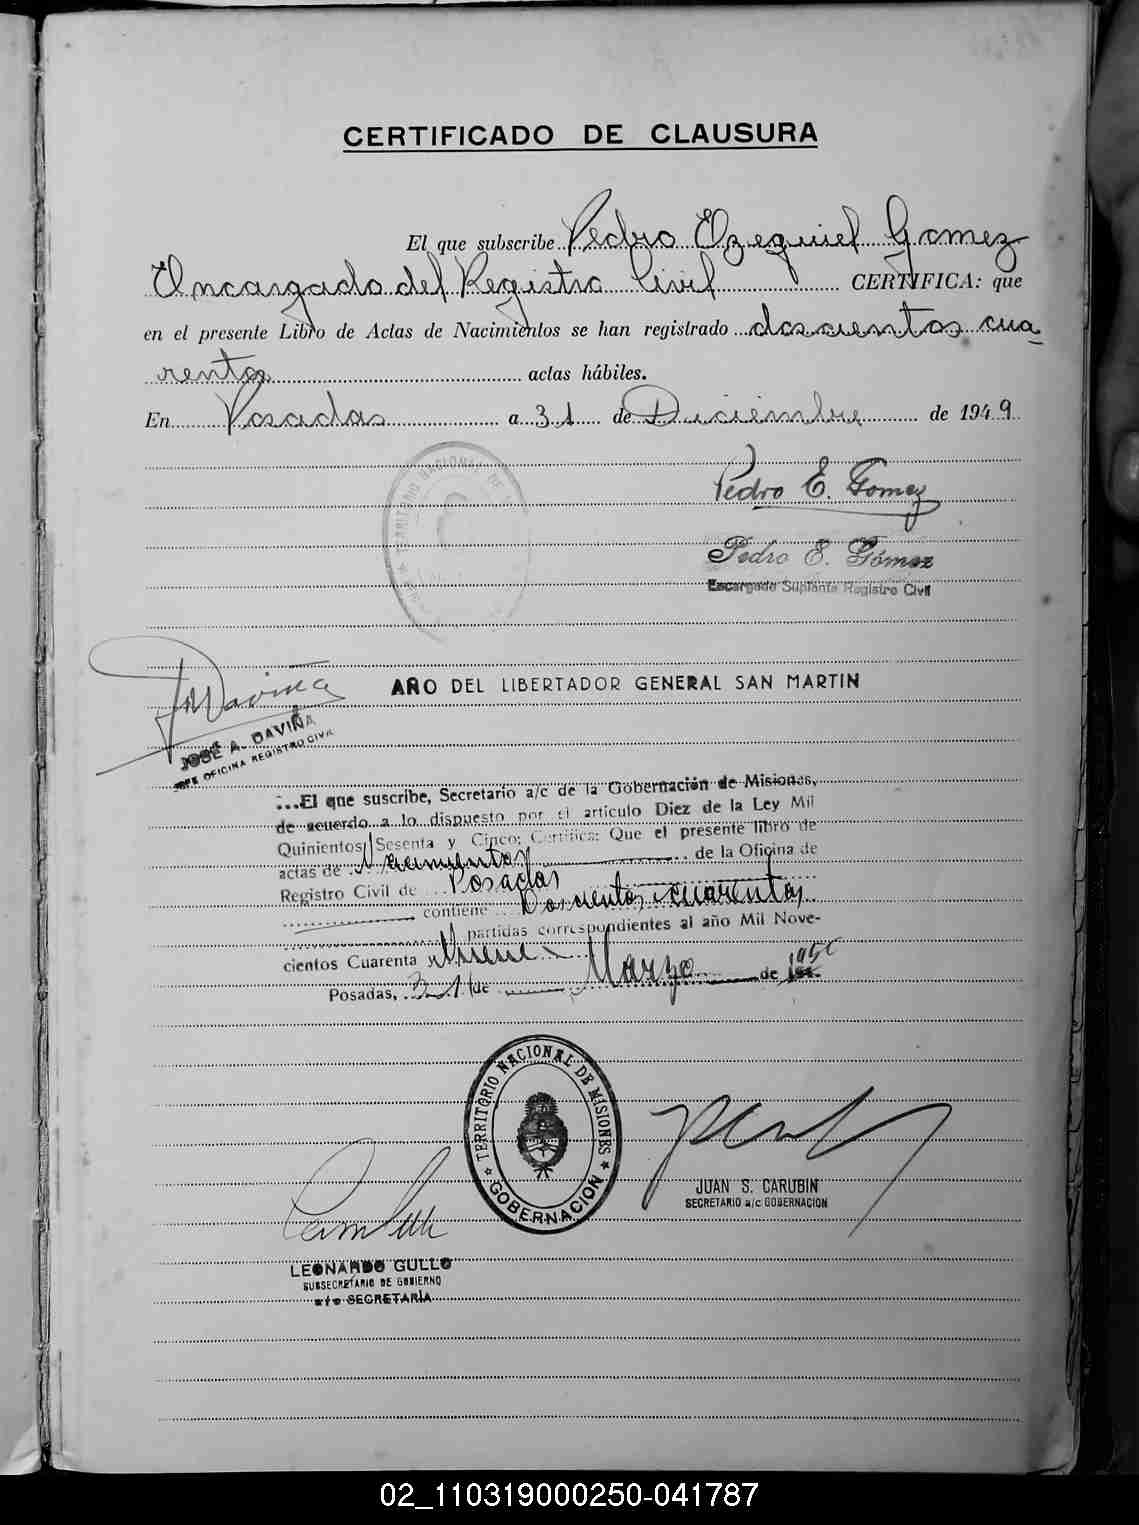 CERTIFICADO DE CLAUSURA
El que subscribe Pedro Ezequiel Gomez
Encargado del Registro Civil CERTIFICA: que
en el presente Libro de Actas de Nacimientos se han registrado doscientos cua-
renta actas hábiles.
En Posadas a 31 de Diciembre de 1949
TERRITORIO NACIONAL DE
Pedro E. Gomez
Pedro E. Gómez
Encargado Suplente Registro Civil
AÑO DEL LIBERTADOR GENERAL SAN MARTIN
JDaviña
JOSÉ A. DAVIÑA
JEFE OFICINA REGISTRO CIVIL
...El que suscribe, Secretario a/c de la Gobernación de Misiones,
de acuerdo a lo dispuesto por el artículo Diez de la Ley Mil
Quinientos Sesenta y Cinco; Certifica: Que el presente libro de
actas de Nacimientos de la Oficina de
Registro Civil de Posadas
contiene Doscientos cuarentas
partidas correspondientes al año Mil Nove-
cientos Cuarenta y Nueve
Posadas, 31 de Marzo de 1950
TERRITORIO NACIONAL DE MISIONES
GOBERNACION
JUAN S. CARUBIN
SECRETARIO a/c GOBERNACION
LEONARDO GULLO
SUBSECRETARIO DE GOBIERNO
a/c SECRETARÍA
02_110319000250-041787